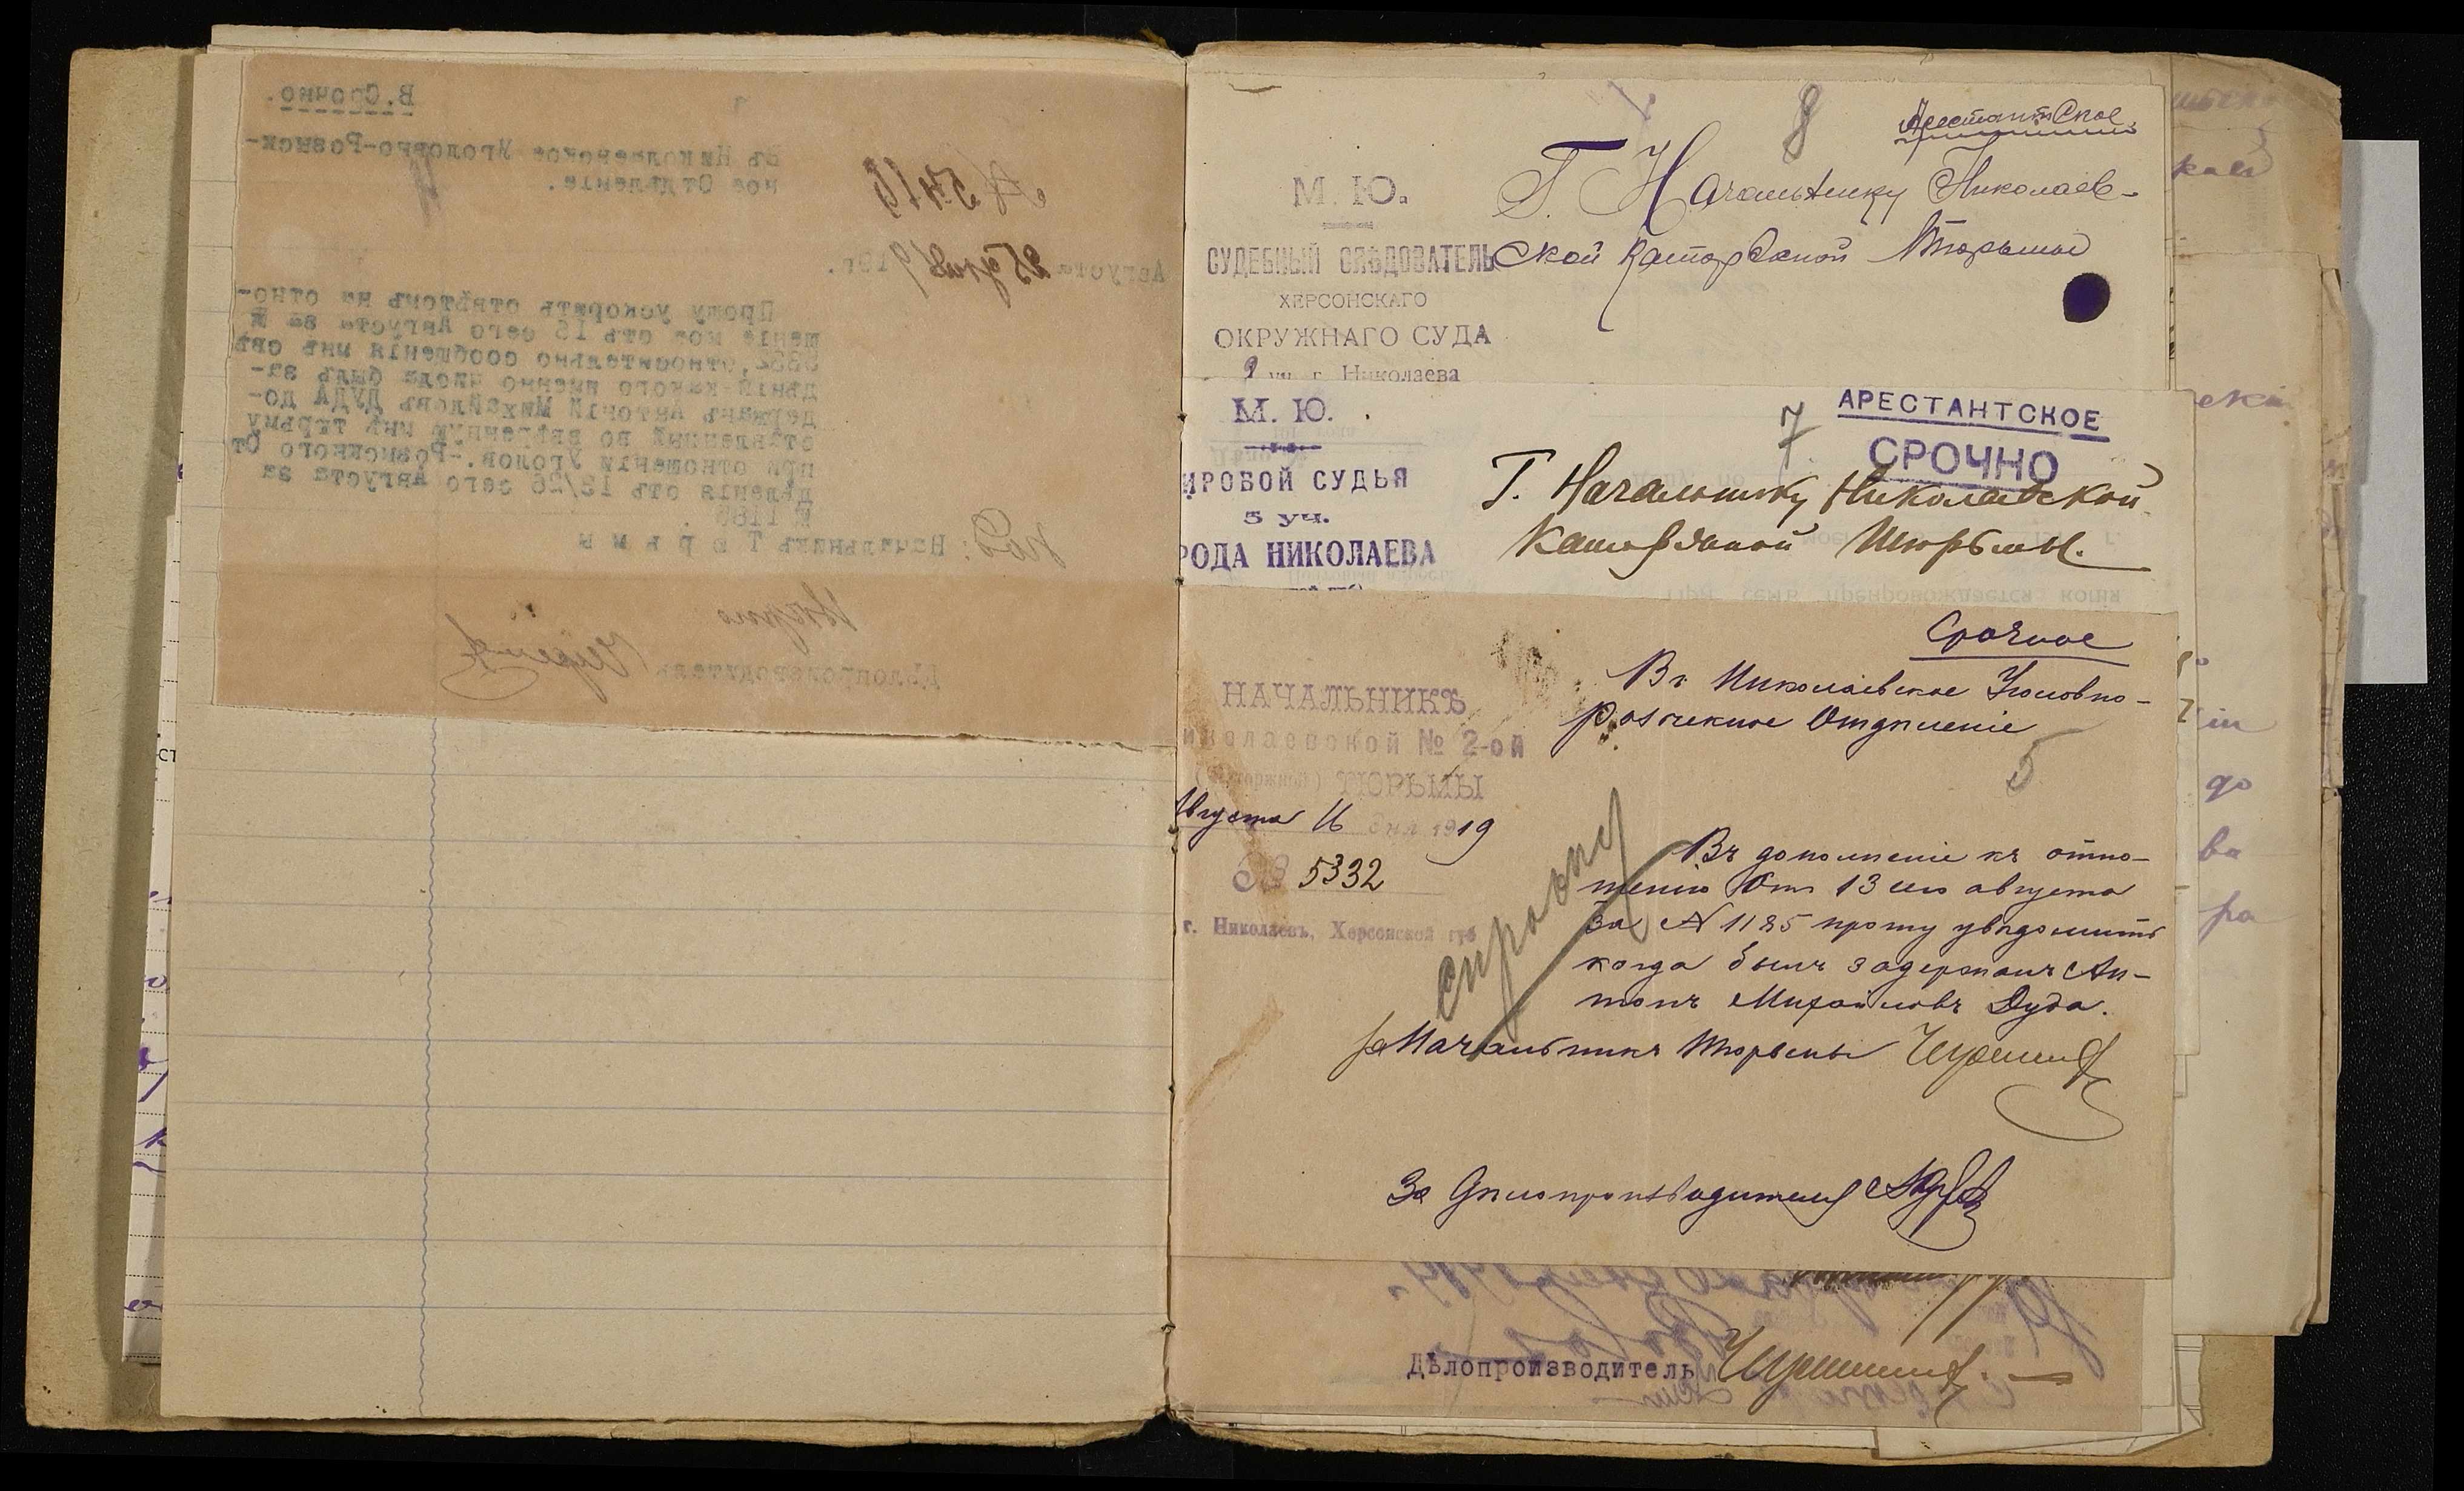 В.Срочно.
Въ Николаевское Уголовно-Розыск-
ное Отдѣленіе.
№ 5416
Августа 25 дня 1919г.
Прошу ускорить отвѣтомъ на отно-
шеніе мое отъ 16 сего Августа за №
5332,относительно сообщенія мнѣ свѣ
дѣній-какого именно числа былъ за-
держанъ Антоній Михайловъ ДУДА до-
ставленный во ввѣренную мнѣ тюрьму
при отношеніи Уголов.-Розыскного От
дѣленія отъ 13/26 сего Августа за
№ 1185 .
под: Начальникъ Т ю р ь м ы
Вѣрно
Дѣлопроизводитель
8
Арестантское.
М. Ю.
СУДЕБНЫЙ СЛѢДОВАТЕЛЬ
ХЕРСОНСКАГО
ОКРУЖНАГО СУДА
2 уч. г. Николаева
Г. Начальнику Николаев-
ской Каторжной Тюрьмы
7
АРЕСТАНТСКОЕ
СРОЧНО
М. Ю.
ИРОВОЙ СУДЬЯ
5 уч.
РОДА НИКОЛАЕВА
Г. Начальнику Николаевской
Каторжной Тюрьмы.
При семъ препровождается копія
Срочное
Въ Николаевское Уголовно-
розыскное Отдѣленіе
5
НАЧАЛЬНИКЪ
иколаевской № 2-ой
(Каторжной) ТЮРЬМЫ
Августа 16 дня 1919
№ 5332
г. Николаевъ, Херсонской губ
справку
Въ дополненіе къ отно-
шенію отъ 13 сего августа
за № 1185 прошу увѣдомить
когда былъ задержанъ Ан-
тонъ Михайловъ Дуда.
За Начальникъ Тюрьмы
За Дѣлопроизводителя
Дѣлопроизводитель